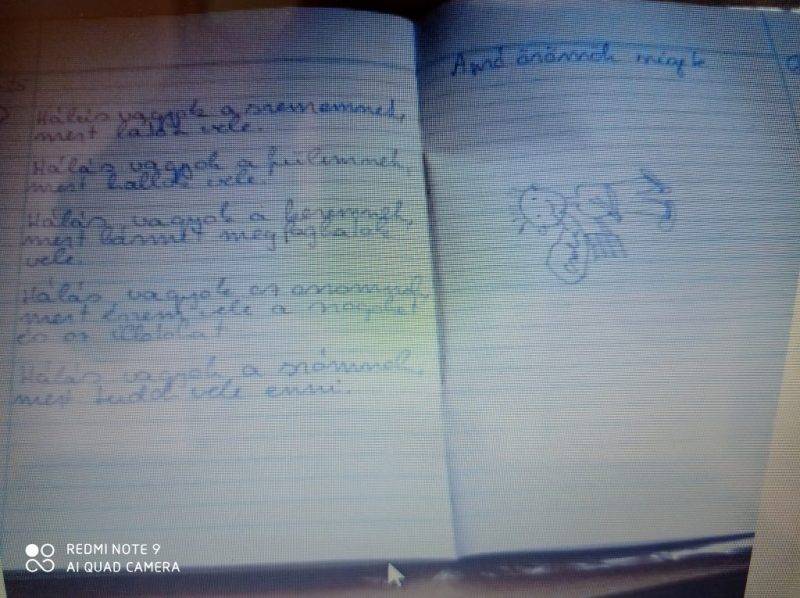 Hálás vagyok a szememnek,
mert látok vele.
Hálás vagyok a fülemnek,
mert hallok vele.
Hálás vagyok a kezemnek,
mert bármit megfoghatok
vele.
Hálás vagyok az orromnak,
mert érzem vele a szagokat
és az illatokat
Hálás vagyok a számnak,
mert tudok vele enni.
Ami örömmel
REDMI NOTE 9
AI QUAD CAMERA